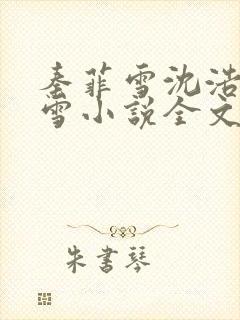 秦菲雪沈浩
雪小说全文
朱书琴